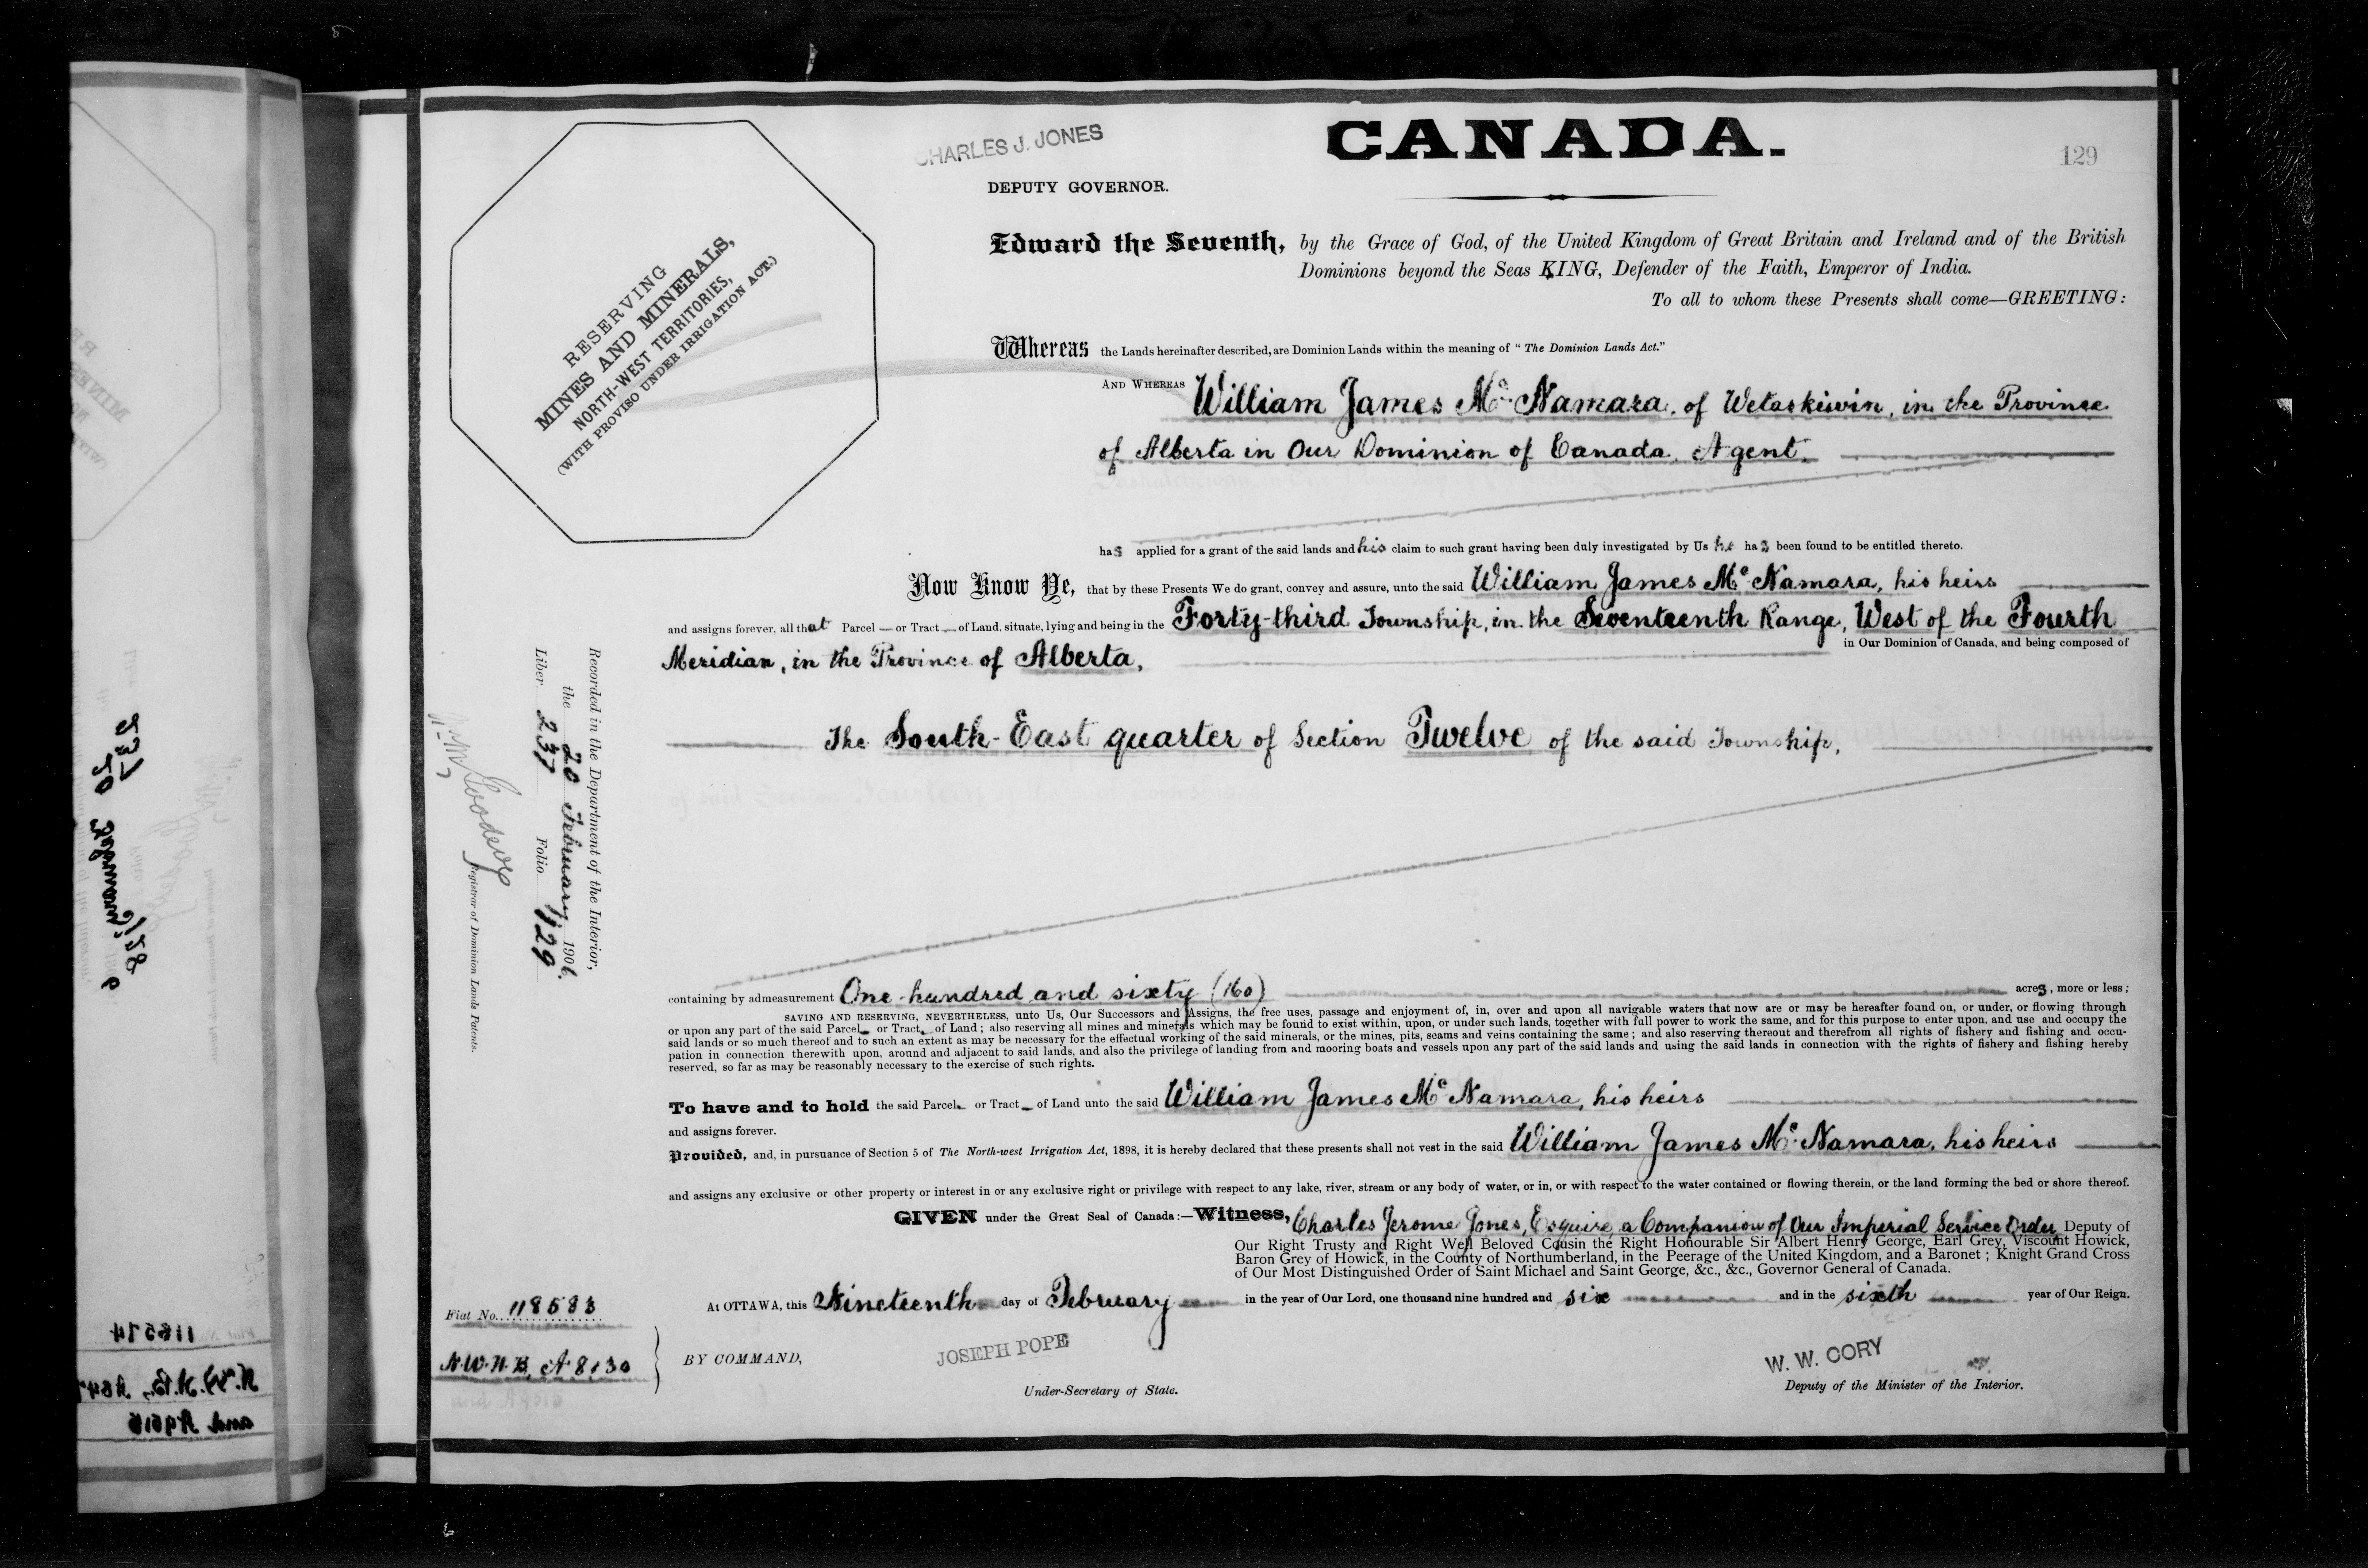 CHARLES J. JONES
CANADA.
129
DEPUTY GOVERNOR.
RESERVING
MINES AND MINERALS,
NORTH-WEST TERRITORIES,
(WITH PROVISO UNDER IRRIGATION ACT.)
Edward the Seventh, by the Grace of God, of the United Kingdom of Great Britain and Ireland and of the British
Dominions beyond the Seas KING, Defender of the Faith, Emperor of India.
To all to whom these Presents shall come—GREETING:
Whereas the Lands hereinafter described, are Dominion Lands within the meaning of "The Dominion Lands Act."
AND WHEREAS William James McNamara, of Wetaskiwin, in the Province
of Alberta in Our Dominion of Canada, Agent.
has applied for a grant of the said lands and his claim to such grant having been duly investigated by Us he has been found to be entitled thereto.
Now Know Ye, that by these Presents We do grant, convey and assure, unto the said William James McNamara, his heirs
and assigns forever, all that Parcel — or Tract — of Land, situate, lying and being in the Forty-third Township, in the Seventeenth Range, West of the Fourth
Meridian, in the Province of Alberta, in Our Dominion of Canada, and being composed of
The South-East quarter of Section Twelve of the said Township,
Recorded in the Department of the Interior,
the 20 February 1906.
Liber 237 Folio 129
Registrar of Dominion Lands Patents.
containing by admeasurement One hundred and sixty (160) acres, more or less;
SAVING AND RESERVING, NEVERTHELESS, unto Us, Our Successors and Assigns, the free uses, passage and enjoyment of, in, over and upon all navigable waters that now are or may be hereafter found on, or under, or flowing through
or upon any part of the said Parcel— or Tract— of Land; also reserving all mines and minerals which may be found to exist within, upon, or under such lands, together with full power to work the same, and for this purpose to enter upon, and use and occupy the
said lands or so much thereof and to such an extent as may be necessary for the effectual working of the said minerals, or the mines, pits, seams and veins containing the same; and also reserving thereout and therefrom all rights of fishery and fishing and occu-
pation in connection therewith upon, around and adjacent to said lands, and also the privilege of landing from and mooring boats and vessels upon any part of the said lands and using the said lands in connection with the rights of fishery and fishing hereby
reserved, so far as may be reasonably necessary to the exercise of such rights.
To have and to hold the said Parcel— or Tract— of Land unto the said William James McNamara, his heirs
and assigns forever.
Provided, and, in pursuance of Section 5 of The North-west Irrigation Act, 1898, it is hereby declared that these presents shall not vest in the said William James McNamara, his heirs
and assigns any exclusive or other property or interest in or any exclusive right or privilege with respect to any lake, river, stream or any body of water, or in, or with respect to the water contained or flowing therein, or the land forming the bed or shore thereof.
GIVEN under the Great Seal of Canada:—Witness, Charles Jerome Jones, Esquire, a Companion of Our Imperial Service Order, Deputy of
Our Right Trusty and Right Well Beloved Cousin the Right Honourable Sir Albert Henry George, Earl Grey, Viscount Howick,
Baron Grey of Howick, in the County of Northumberland, in the Peerage of the United Kingdom, and a Baronet; Knight Grand Cross
of Our Most Distinguished Order of Saint Michael and Saint George, &c., &c., Governor General of Canada.
At OTTAWA, this Nineteenth day of February in the year of Our Lord, one thousand nine hundred and six and in the sixth year of Our Reign.
Fiat No. 118583
N.W.H.B. A 8130
BY COMMAND,
JOSEPH POPE
Under-Secretary of State.
W. W. CORY
Deputy of the Minister of the Interior.